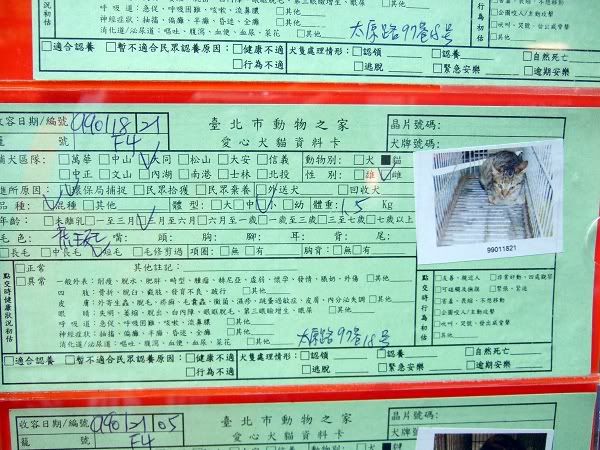 呼吸道：急促、呼吸困難、咳嗽、流鼻膿 □其他
神經症狀：抽搐、偏癱、平癱、昏迷、全癱 □其他
消化道/泌尿道：嘔吐、腹瀉、血便、血尿、菜花 □其他
太原路97巷18号
□吠叫、哭號、發出威脅聲
□適合認養 □暫不適合民眾認養原因：□健康不適 □行為不同
犬隻處理情形：□認領 □認養 □自然死亡
□逃脫 □緊急安樂 □逾期安樂
收容日期/編號 990118 21
籠號 F4
臺北市動物之家
愛心犬貓資料卡
晶片號碼：
犬牌號碼：
捕犬區隊：□萬華 □中山 □大同 □松山 □大安 □信義 動物別：□犬 ■貓
□中正 □文山 □內湖 □南港 □士林 □北投 性別：□雄 □雌
進所原因：□環保局捕捉 □民眾拾獲 □民眾棄養 □外送犬 □回收犬
品種：□混種 □其他 體型：□大 □中 □小 □幼 體重：1.5 Kg
年齡：□未離乳 □一至三月 □三月至六月 □六月至一歲 □一歲至三歲 □三至七歲 □七歲以上
毛色：虎斑 嘴 頭 胸 腳 耳 背 尾
□長毛 □中長毛 □短毛 □毛修剪過 項圈：□無 □有 胸背：□無 □有
點交時健康狀況初估
□正常 其他註記：
□異常
一般外表：削瘦、脫水、肥胖、畸型、腫瘤、赫尼亞、虛弱、懷孕、發情、脹奶、外傷 □其他
四肢：骨折、脫臼、截肢、發育不良、跛行 □其他
皮膚：外寄生蟲、脫毛、疥癬、毛囊蟲、黴菌、濕疹、跳蚤過敏症、皮膚、內分泌失調 □其他
眼睛：失明、萎縮、脫出、白內障、眼瞼脫毛、第三眼瞼增生、眼屎 □其他
呼吸道：急促、呼吸困難、咳嗽、流鼻膿 □其他
神經症狀：抽搐、偏癱、平癱、昏迷、全癱 □其他
消化道/泌尿道：嘔吐、腹瀉、血便、血尿、菜花 □其他
太原路97巷18号
點交時行為初估
□友善、親近人 □非常好動、四處觀望
□可碰觸及撫摸 □緊張、緊迫
□害羞、畏縮、不想移動
□公園咬人/主動攻擊
□吠叫、哭號、發出威脅聲
99011821
□適合認養 □暫不適合民眾認養原因：□健康不適 □行為不同
犬隻處理情形：□認領 □認養 □自然死亡
□逃脫 □緊急安樂 □逾期安樂
收容日期/編號 990121 05
籠號 F4
臺北市動物之家
愛心犬貓資料卡
晶片號碼：
犬牌號碼：